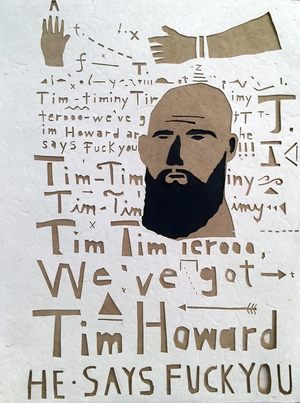 t. ! x
f T.
Tim-timiny Tim iny T.
terooo-we've g tT
im Howard ar
says Fuckyou !!!
Tim-Tim iny
Tim-Tim imy
Tim Tim Terooo,
We've got
Tim Howard
HE·SAYS FUCKYOU